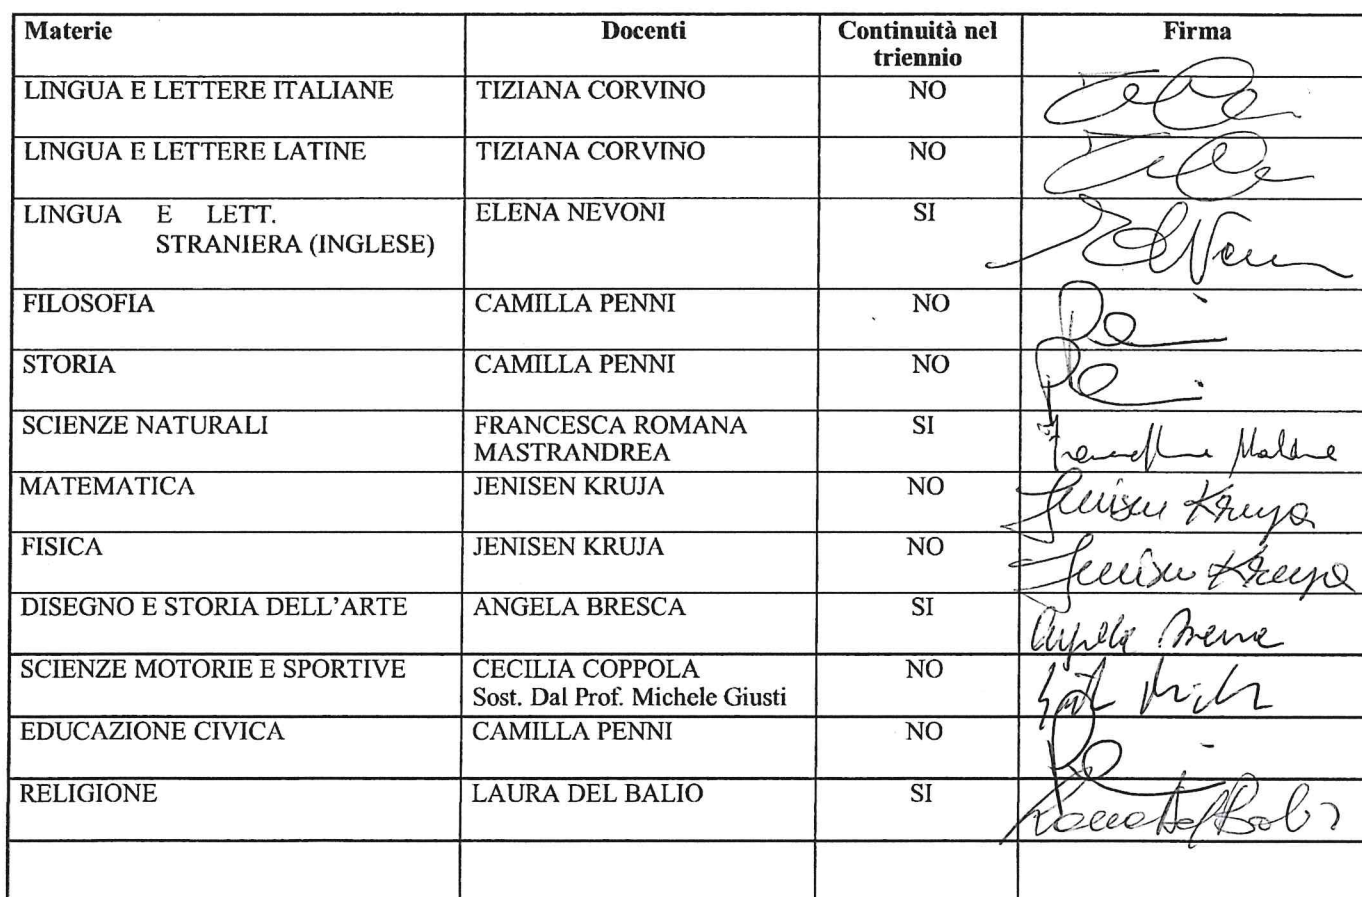 Materie Docenti Continuità nel triennio Firma
LINGUA E LETTERE ITALIANE TIZIANA CORVINO NO
LINGUA E LETTERE LATINE TIZIANA CORVINO NO
LINGUA E LETT. ELENA NEVONI SI
STRANIERA (INGLESE)
FILOSOFIA CAMILLA PENNI NO
STORIA CAMILLA PENNI NO
SCIENZE NATURALI FRANCESCA ROMANA SI
MASTRANDREA
MATEMATICA JENISEN KRUJA NO Jenisen Kruja
FISICA JENISEN KRUJA NO Jenisen Kruja
DISEGNO E STORIA DELL'ARTE ANGELA BRESCA SI
SCIENZE MOTORIE E SPORTIVE CECILIA COPPOLA NO
Sost. Dal Prof. Michele Giusti
EDUCAZIONE CIVICA CAMILLA PENNI NO
RELIGIONE LAURA DEL BALIO SI